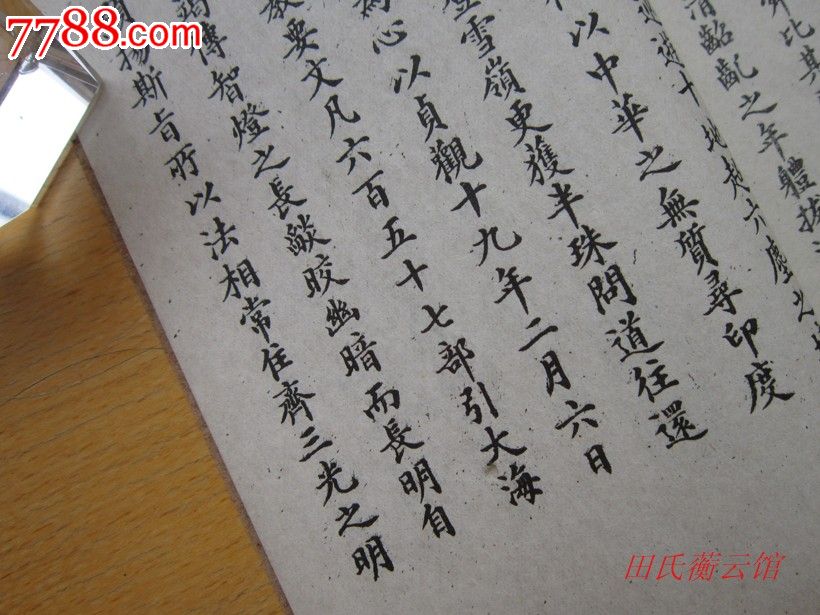 7788.com
比其
清齠齔之年體拔
進十地超六塵之
以中華之無質尋印度
登雪嶺更獲半珠問道往還
為心以貞觀十九年二月六日
教要文凡六百五十七部引大海
竭傳智燈之長燄晈幽暗而長明自
揚斯旨所以法相常住齊三光之明
田氏蘅云馆